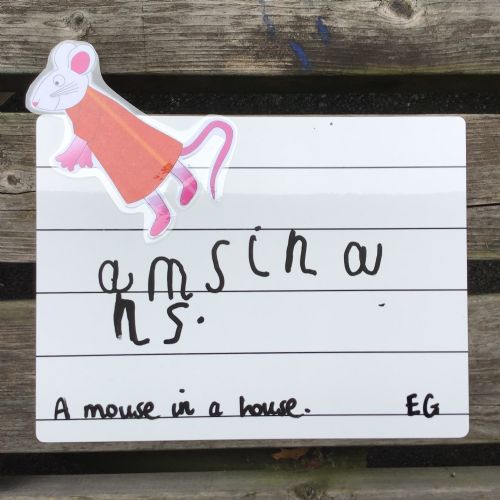 amsina
hs.
A mouse in a house. EG